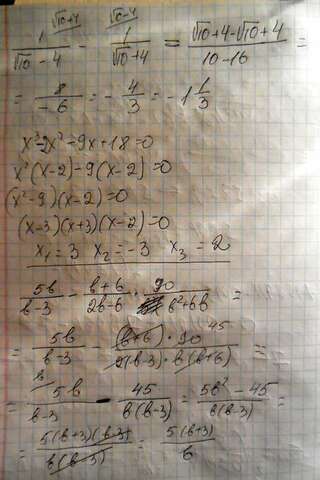 √10+4 √10-4
1/(√10-4) - 1/(√10+4) = (√10+4-√10+4)/(10-16) =
= 8/-6 = -4/3 = -1 1/3
x³-2x²-9x+18=0
x²(x-2)-9(x-2)=0
(x²-9)(x-2)=0
(x-3)(x+3)(x-2)=0
x₁=3 x₂=-3 x₃=2
5b/(b-3) - (b+6)/(2b-6) · 90/(b²+6b) =
= 5b/(b-3) - ((b+6)·90 45)/(2(b-3)·b(b+6)) =
= b 5b/(b-3) - 45/(b(b-3)) = (5b²-45)/(b(b-3)) =
= (5(b+3)(b-3))/(b(b-3)) = (5(b+3))/b